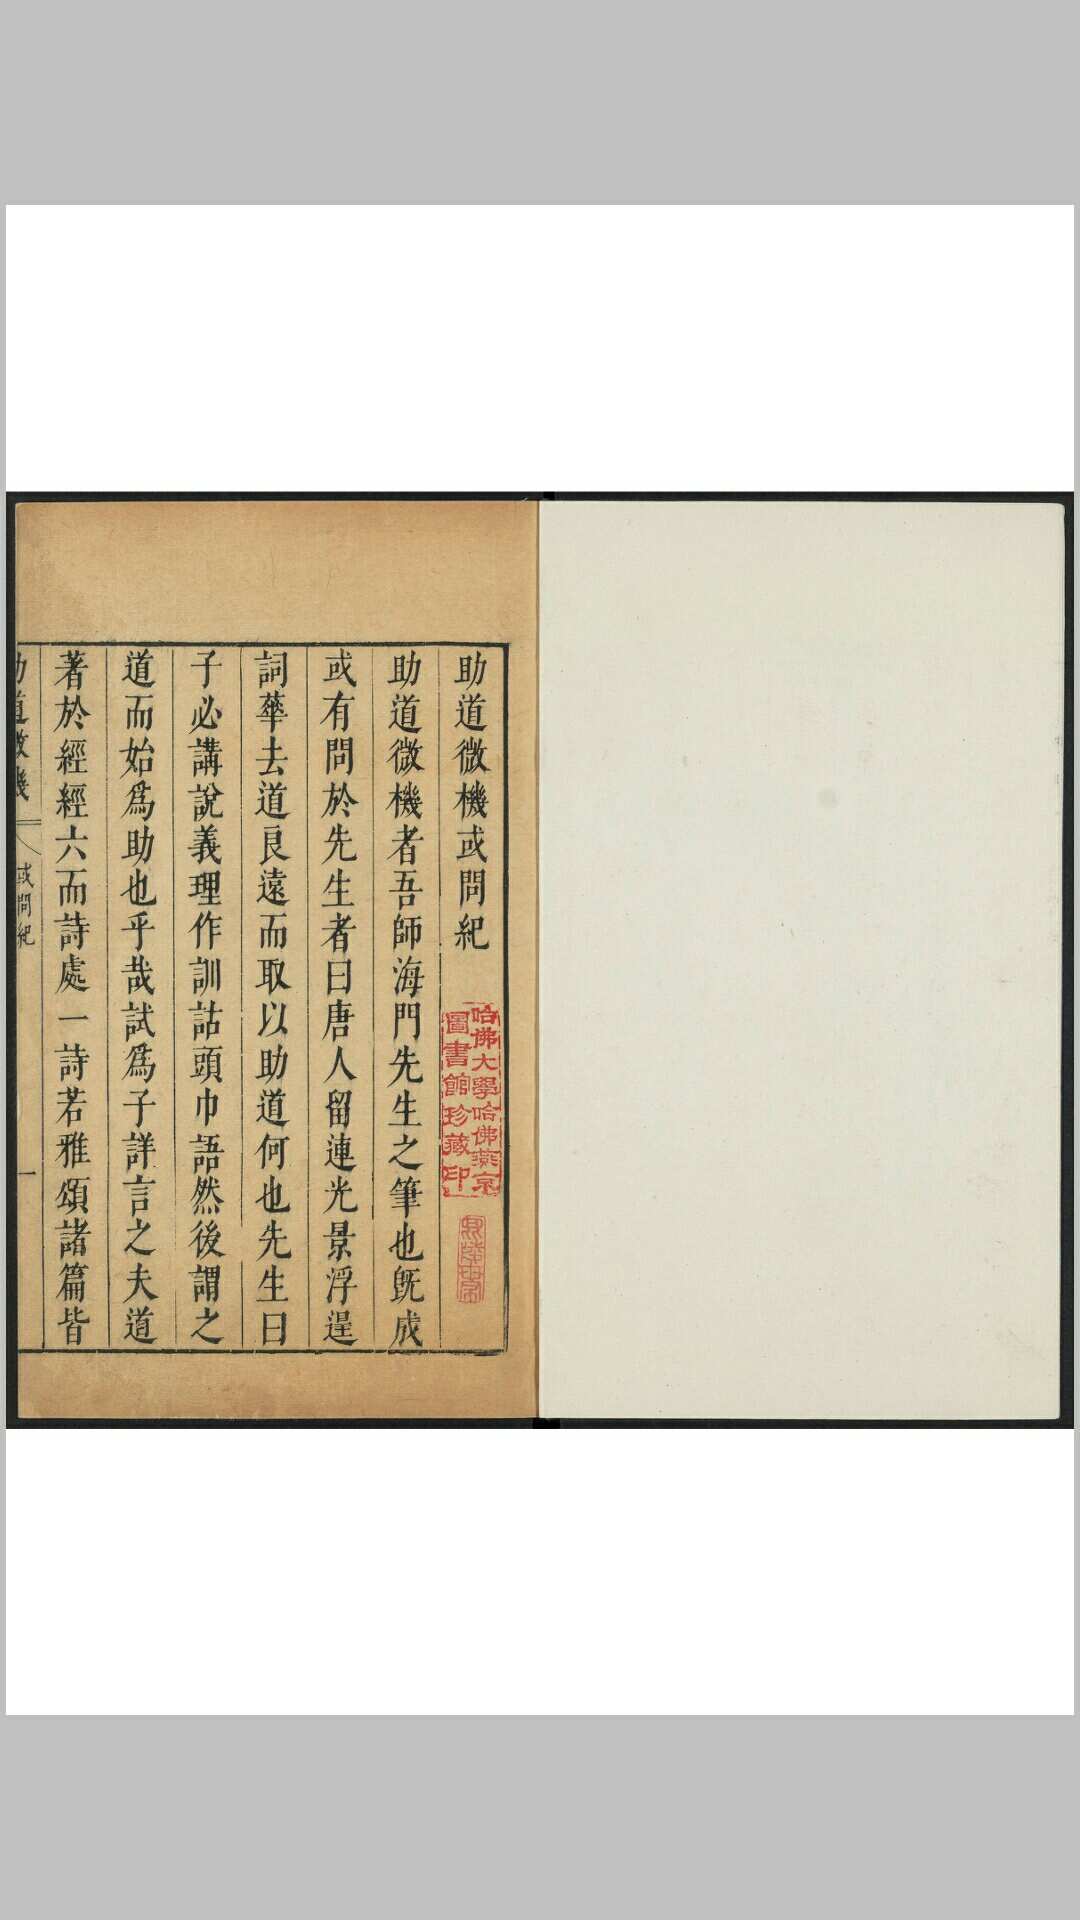 助道微機或問紀
助道微機者吾師海門先生之筆也旣成
或有問於先生者曰唐人留連光景浮逞
詞華去道良遠而取以助道何也先生曰
子必講說義理作訓詁頭巾語然後謂之
道而始爲助也乎哉試爲子詳言之夫道
著於經經六而詩處一詩若雅頌諸篇皆
助道微機
或問紀
一
哈佛大學哈佛燕京
圖書館珍藏印